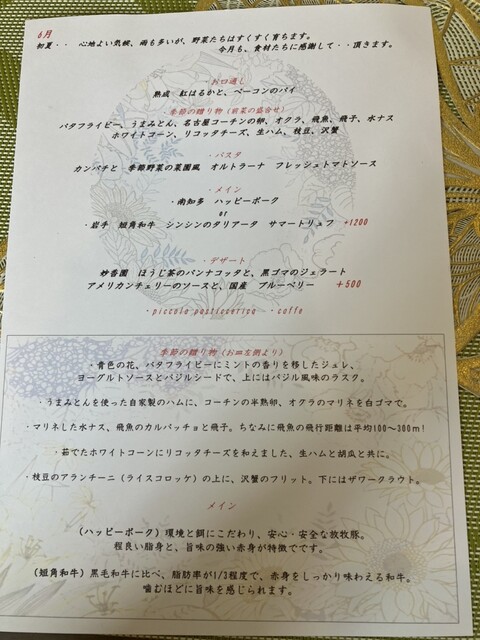 6月
初夏・・ 心地よい気候、雨も多いが、野菜たちはすくすく育ちます。
今月も、食材たちに感謝して・・頂きます。
・お口通し
熟成 紅はるかと、ベーコンのパイ
季節の贈り物（前菜の盛合せ）
バタフライピー、うまみとん、名古屋コーチンの卵、オクラ、飛魚、飛子、水ナス
ホワイトコーン、リコッタチーズ、生ハム、枝豆、沢蟹
・パスタ
カンパチと 季節野菜の菜園風 オルトラーナ フレッシュトマトソース
・メイン
・南知多 ハッピーポーク
or
・岩手 短角和牛 シンシンのタリアータ サマートリュフ +1200
・デザート
妙香園 ほうじ茶のパンナコッタと、黒ゴマのジェラート
アメリカンチェリーのソースと、国産 ブルーベリー +500
・piccola pasticceria ・caffe
季節の贈り物（お皿左側より）
・青色の花、バタフライピーにミントの香りを移したジュレ、
ヨーグルトソースとバジルシードで、上にはバジル風味のラスク。
・うまみとんを使った自家製のハムに、コーチンの半熟卵、オクラのマリネを白ゴマで。
・マリネした水ナス、飛魚のカルパッチョと飛子。ちなみに飛魚の飛行距離は平均100～300m！
・茹でたホワイトコーンにリコッタチーズを和えました、生ハムと胡瓜と共に。
・枝豆のアランチーニ（ライスコロッケ）の上に、沢蟹のフリット。下にはザワークラウト。
メイン
（ハッピーポーク）環境と餌にこだわり、安心・安全な放牧豚。
程良い脂身と、旨味の強い赤身が特徴でです。
（短角和牛）黒毛和牛に比べ、脂肪率が1/3程度で、赤身をしっかり味わえる和牛。
噛むほどに旨味を感じられます。